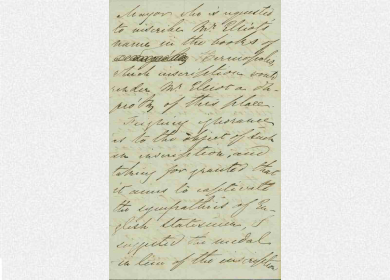 Mayor who is requested
to inscribe Mr. Eliot's
name in the books of
Hermopolis,
which inscription would
render Mr. Eliot a
of this place.
Feigning ignorance
as to the object of such
an inscription, and
taking for granted that
it aims to captivate
the sympathies of En-
glish Statesmen, I
suggested the medal
in lieu of the inscription